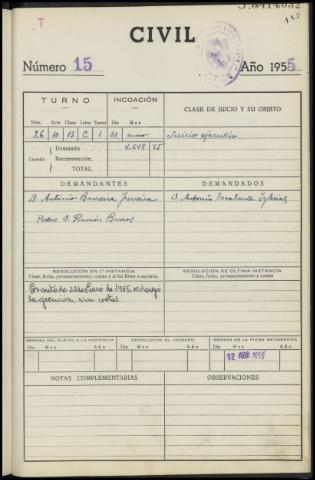 T
CIVIL
Número 15 Año 1955
TURNO INCOACIÓN CLASE DE JUICIO Y SU OBJETO
Núm. Acta Clase Letra Turno Día Mes
26 10 15 C 1 21 enero Juicio ejecutivo
Demanda
Cuantía Reconvención
TOTAL
DEMANDANTES DEMANDADOS
D. Antonio Barrera Ferreira D. Antonio Escalante Iglesias
Procr. D. Ramón Burros
RESOLUCIÓN EN 1ª INSTANCIA RESOLUCIÓN DE ÚLTIMA INSTANCIA
Clase, fecha, pronunciamiento, costas y si fué firme o apelada. Clase, fecha, pronunciamiento y costas
la ejecución, sin costas
REMESA DEL PLEITO A LA AUDIENCIA DEVOLUCIÓN AL JUZGADO REMESA DE LA FICHA ESTADÍSTICA
Día Mes Año Día Mes Año Día Mes Año
12 ABR 1955
NOTAS COMPLEMENTARIAS OBSERVACIONES